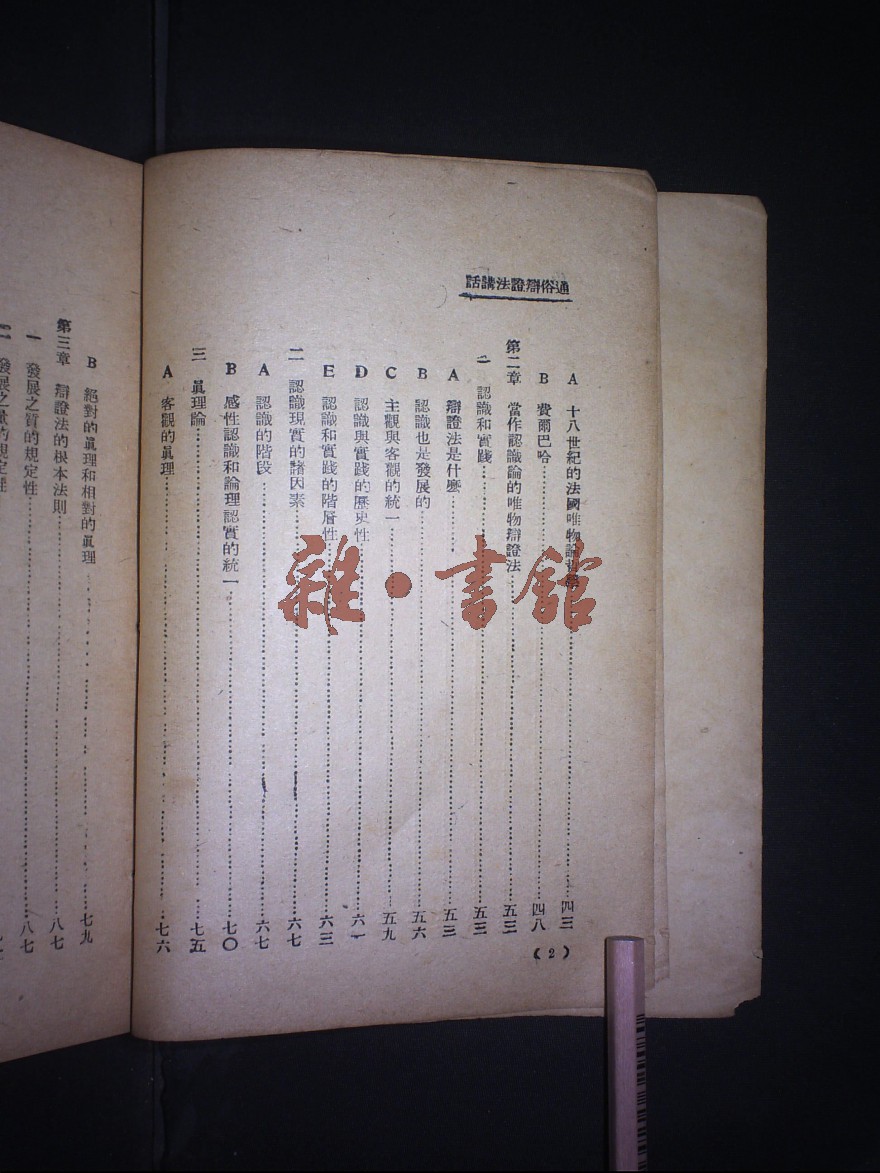 通俗辯證法講話
A 十八世紀的法國唯物論哲學……四三
B 費爾巴哈……四八
第二章 當作認識論的唯物辯證法……五三
一 認識和實踐……五三
A 辯證法是什麽……五三
B 認識也是發展的……五六
C 主觀與客觀的統一……五九
D 認識與實踐的歷史性……六一
E 認識和實踐的階層性……六三
二 認識現實的諸因素……六七
A 認識的階段……六七
B 感性認識和論理認實的統一……七〇
三 眞理論……七五
A 客觀的眞理……七六
(2)
B 絕對的眞理和相對的眞理……七九
第三章 辯證法的根本法則……八七
一 發展之質的規定性……八七
二 發展之量的規定性
雜·書館